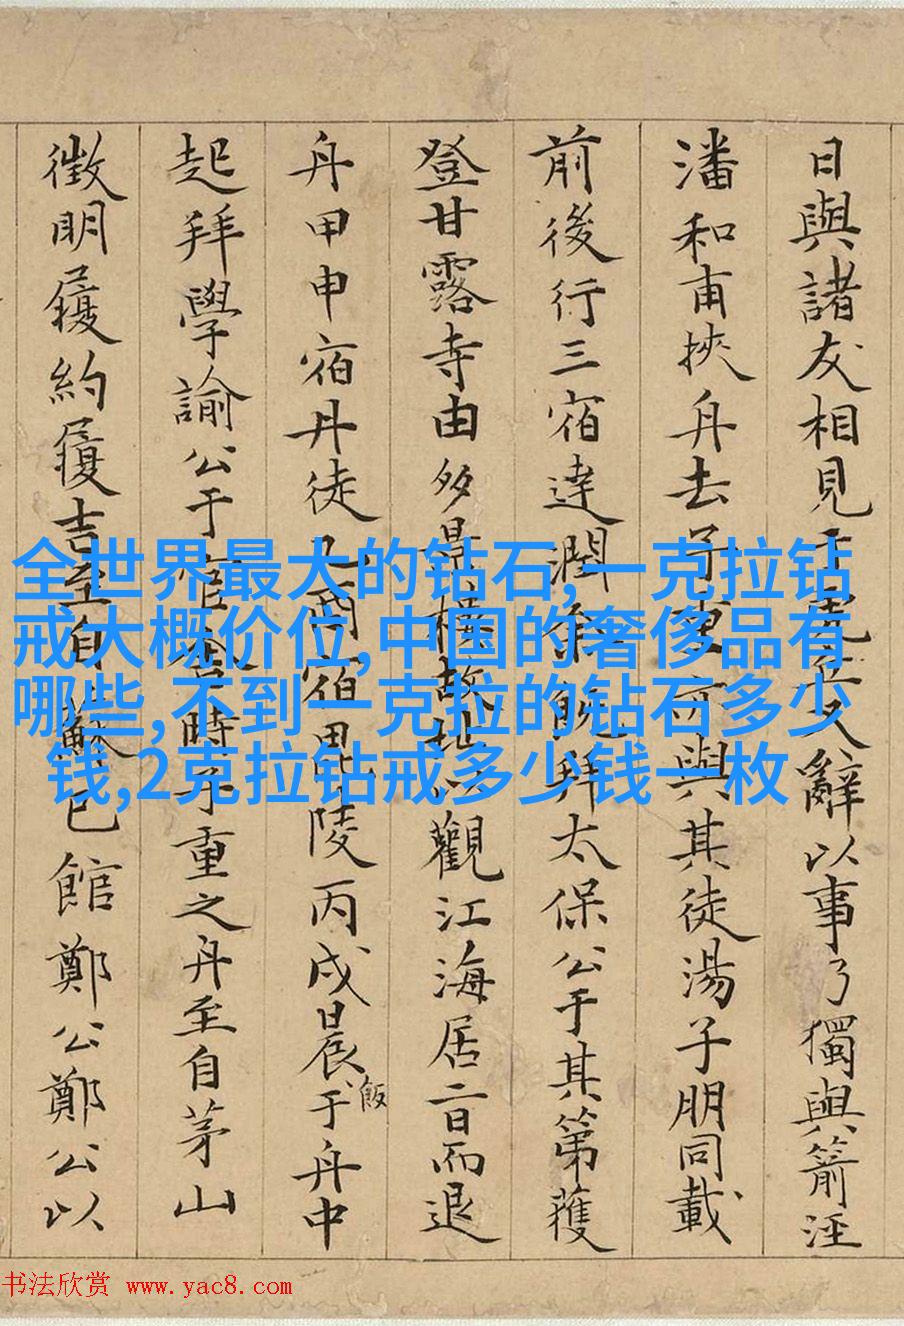 日與諸友相見于虎丘又辭以事乃獨與箭涇
潘和甫挾舟去子重亦與其徒湯子朋同載
前後行三宿達潤余既拜太保公于其第獲
登甘露寺由多景樓故址以觀江海居二日而退
舟甲申宿丹徒乙酉宿毘陵丙戌晨飯于舟中
起拜學諭公于官舍時子重之舟至自茅山
徵明履約履吉至自蘇已館鄭公鄭公以
全世界最大的钻石,一克拉钻
戒大概价位,中国的奢侈品有
哪些,不到一克拉的钻石多少
钱,2克拉钻戒多少钱一枚
书法欣赏 www.yac8.com